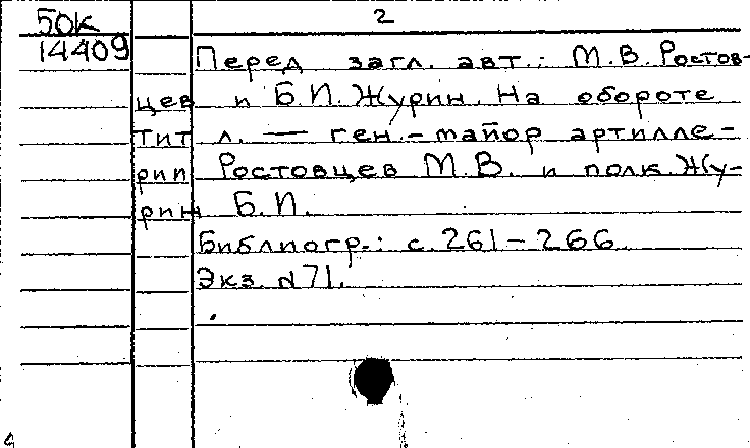 50к 2
14409
Перед загл. авт.: М.В. Ростов-
цев и Б.И. Журин. На обороте
тит л. — ген.-майор артилле-
рии Ростовцев М.В. и полк. Жу-
рин Б.И.
Библиогр.: с. 261-266
Экз. N71.